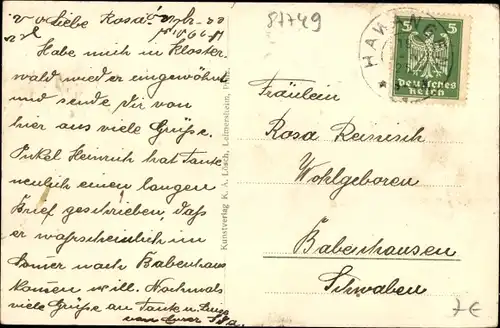 Liebe Rosa!
Habe mich in Kloster-
wald wieder eingewöhnt
und sende Dir von
hier aus viele Grüße.
Onkel Heinrich hat Tante
neulich einen langen
Brief geschrieben, daß
er wahrscheinlich im
Somer nach Babenhaus
komen will. Nochmals
viele Grüße an Tante u.
von Eurer
Kunstverlag K. A. Lösch, Leimersheim,
87749
HAWANG
5 5
Deutsches
Reich
Fräulein
Rosa
Wohlgeboren
Babenhausen
Schwaben
7€